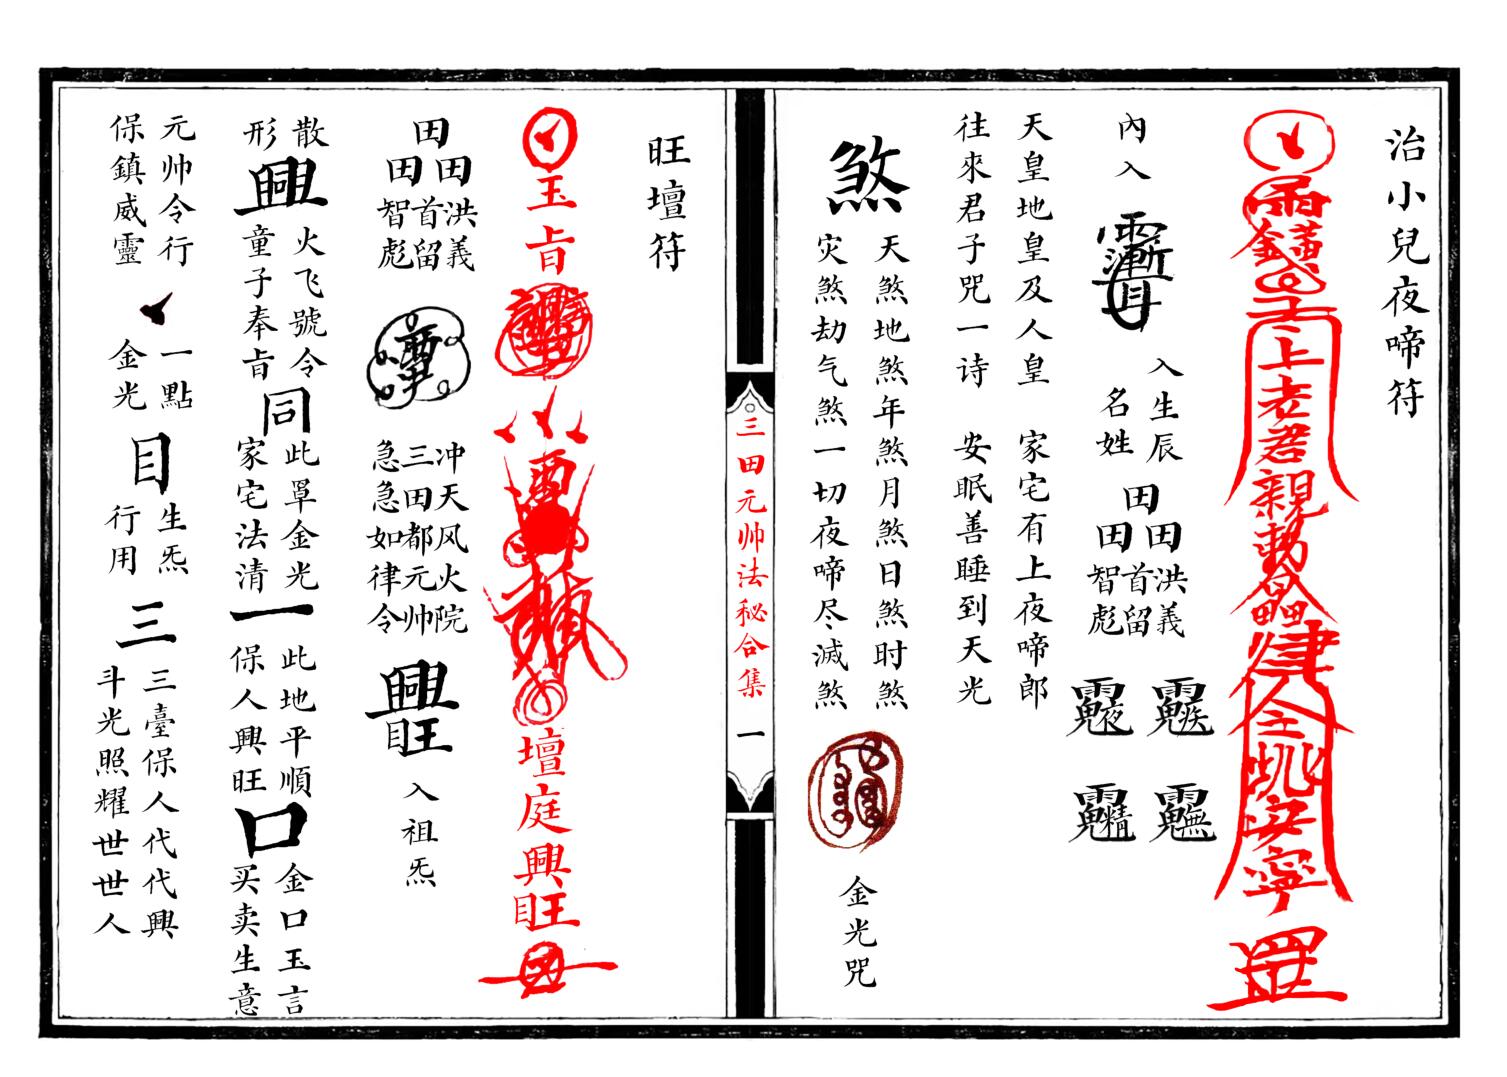 治小兒夜啼符
上老君親勅
律令
安寧
罡
內入
入生辰
名姓
田
田田
洪義
首留
智彪
天皇地皇及人皇 家宅有上夜啼郎
往來君子咒一诗 安眠善睡到天光
煞
天煞地煞年煞月煞日煞时煞
灾煞劫气煞一切夜啼尽滅煞
金光咒
三田元帅法秘合集 一
旺壇符
玉㫖
壇庭興旺
田
田田
洪義
首留
智彪
冲天风火院
三田都元帅
急急如律令
興旺
入祖炁
散形
興
火飞號令
童子奉㫖
同
此罩金光
家宅法清
一
此地平順
保人興旺
口
金口玉言
买卖生意
元帅令行
保鎮威靈
一點
金光
目
生炁
行用
三
三臺保人代代興
斗光照耀世世人